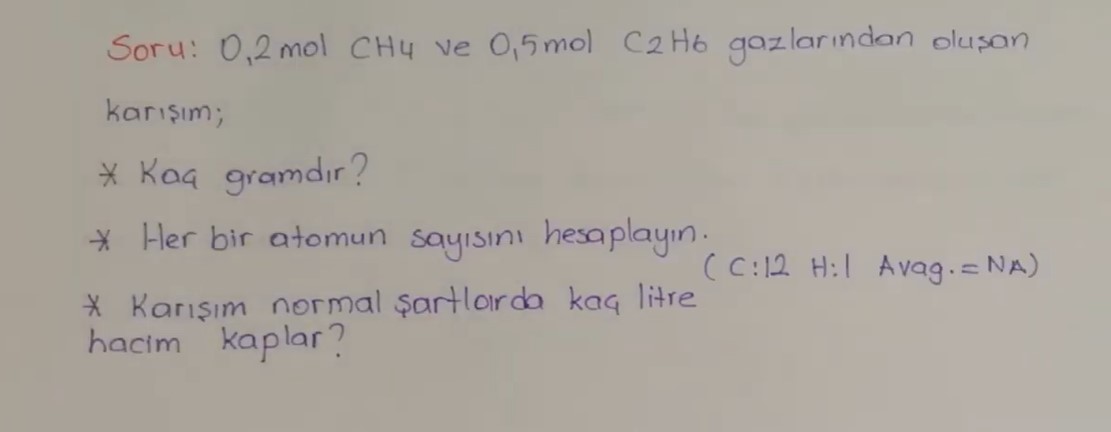 Soru: 0,2 mol CH4 ve 0,5mol C2H6 gazlarından oluşan
karışım;
* Kaç gramdır?
* Her bir atomun sayısını hesaplayın.
(C:12 H:1 Avag.=NA)
* Karışım normal şartlarda kaç litre
hacim kaplar?